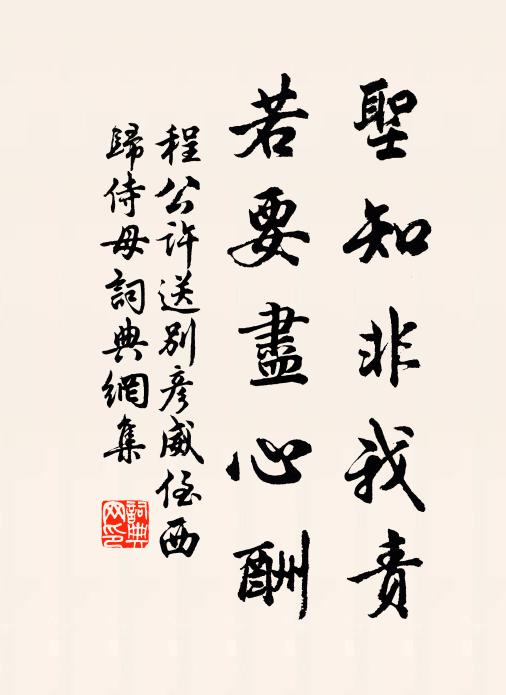 聖知非我責
若要盡心酬
程公許送別彥威侄西
歸侍母詞典網集
詞典
网印